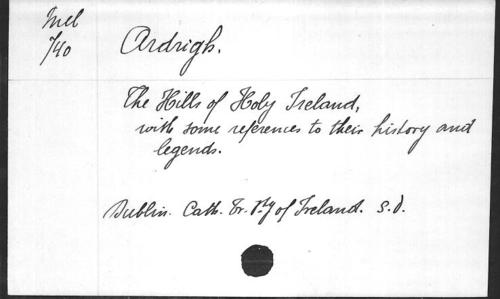 Mel
740
Ardrigh.
The Hills of Holy Ireland,
with some references to their history and
legends.
Dublin. Cath. Tr. Sty of Ireland. s.d.